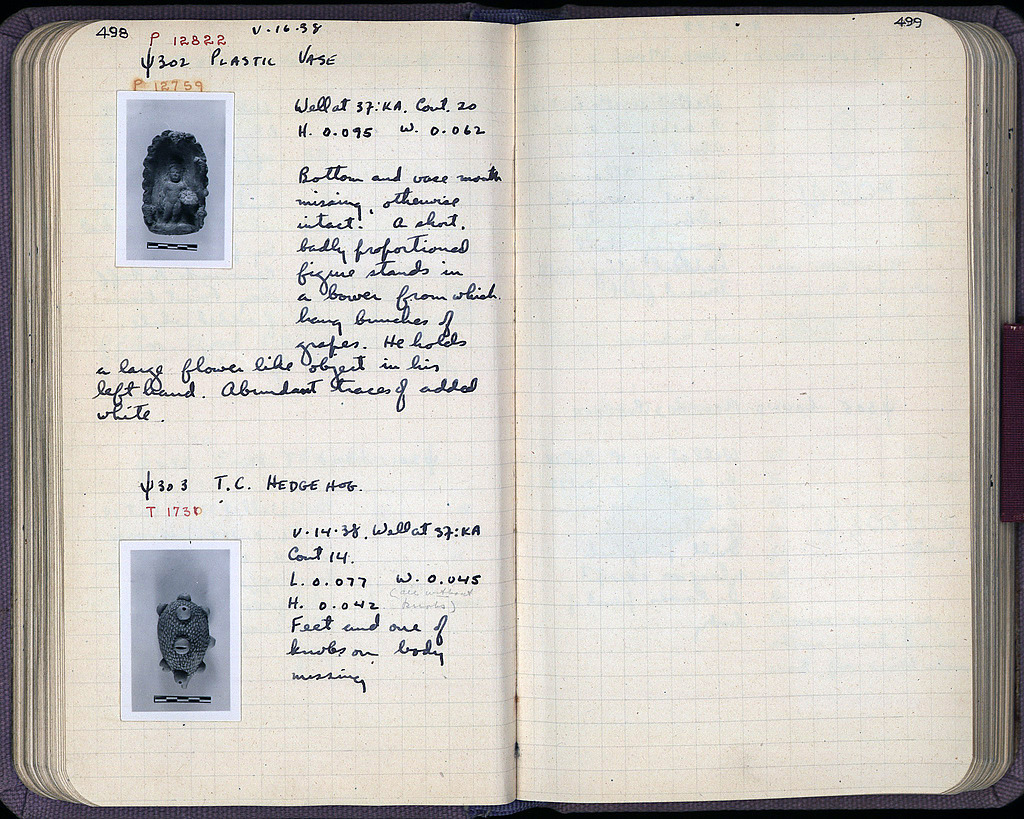 498
P 12822 V·16·38
ψ302 PLASTIC VASE
P 12759
Well at 37:KA, Cont. 20
H. 0.095 W. 0.062
Bottom and vase mouth
missing, otherwise
intact. A short,
badly proportioned
figure stands in
a bower from which
hang bunches of
grapes. He holds
a large flower like object in his
left hand. Abundant traces of added
white.
ψ303 T.C. HEDGEHOG.
T 1730
V·14·38. Well at 37:KA
Cont 14.
L. 0.077 W. 0.045
(all without
H. 0.042 knobs)
Feet and one of
knobs on body
missing
499